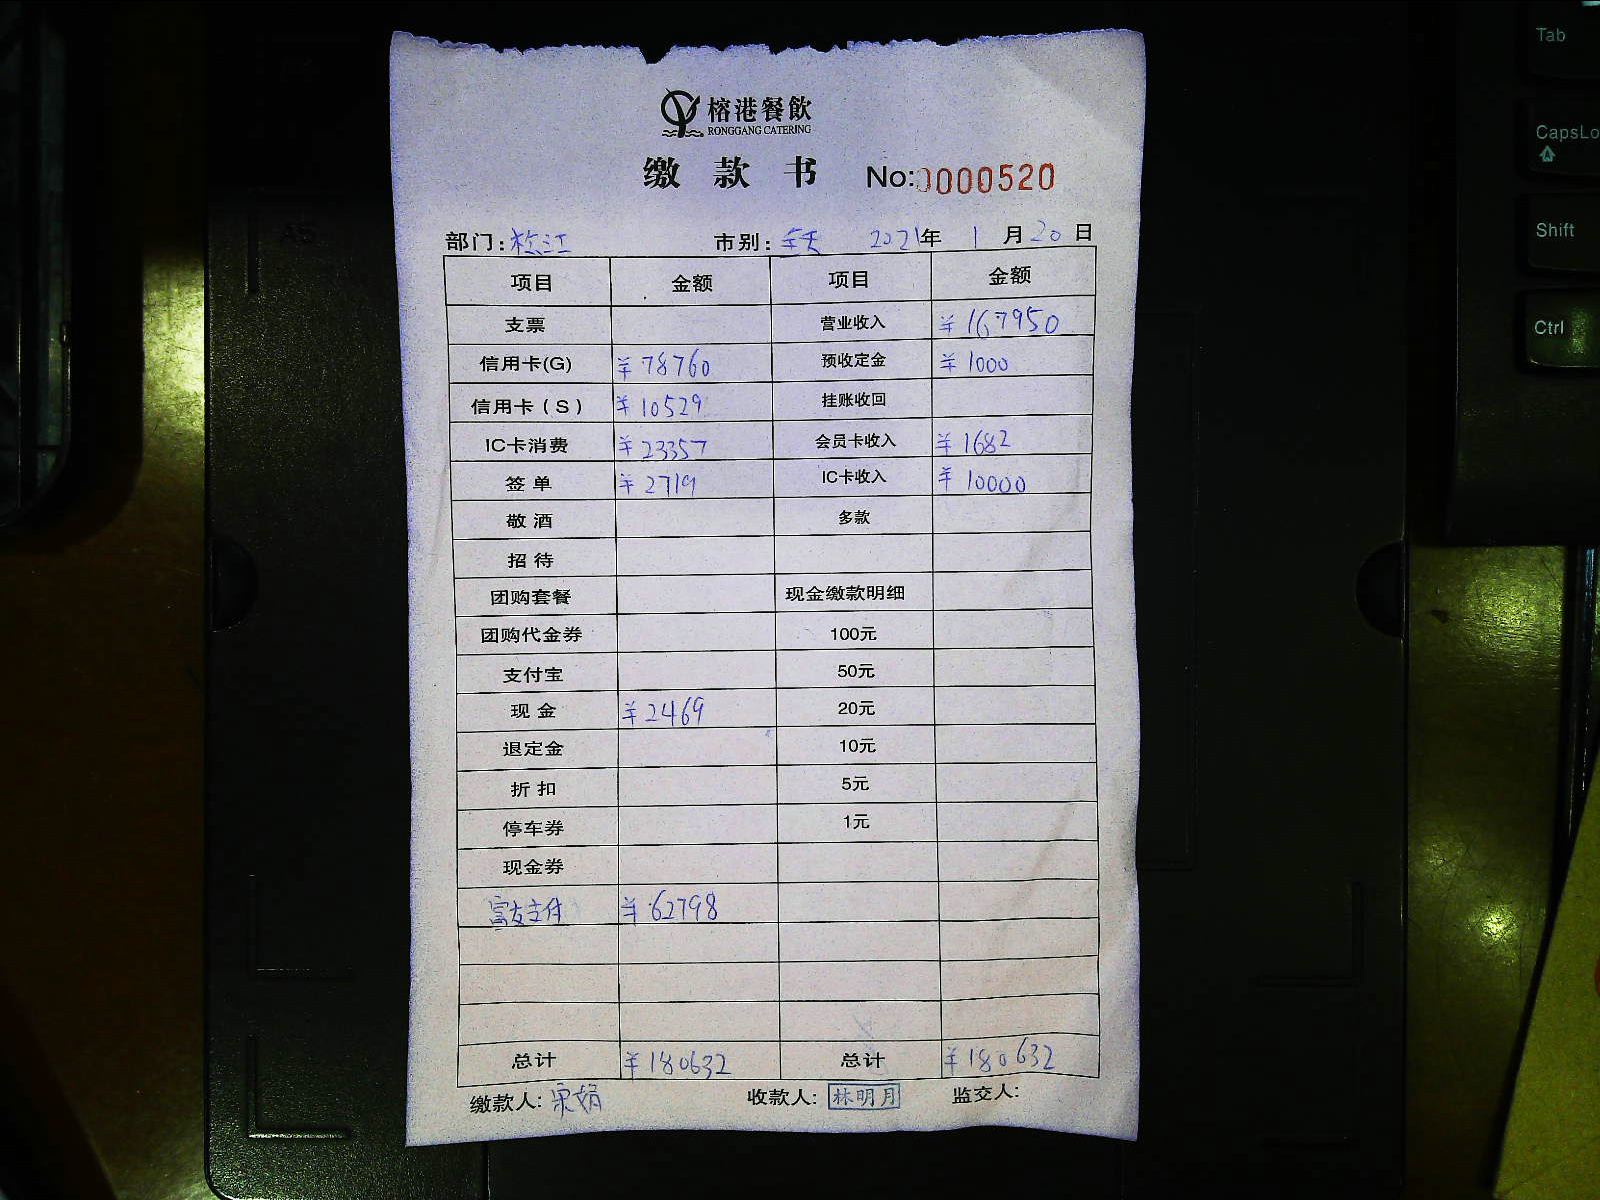 榕港餐飲
RONGGANG CATERING
缴 款 书 No:0000520
部门:松江 市别:全天 2021年 1 月20 日
项目 金额 项目 金额
支票 营业收入 ¥167950
信用卡(G) ¥78760 预收定金 ¥1000
信用卡(S) ¥10529 挂账收回
IC卡消费 ¥23357 会员卡收入 ¥1682
签单 ¥2719 IC卡收入 ¥10000
敬酒 多款
招待
团购套餐 现金缴款明细
团购代金券 100元
支付宝 50元
现金 ¥2469 20元
退定金 10元
折扣 5元
停车券 1元
现金券
富友支付 ¥62798
总计 ¥180632 总计 ¥180632
缴款人: 收款人:林明月 监交人:
Tab
CapsLo
Shift
Ctrl
A5